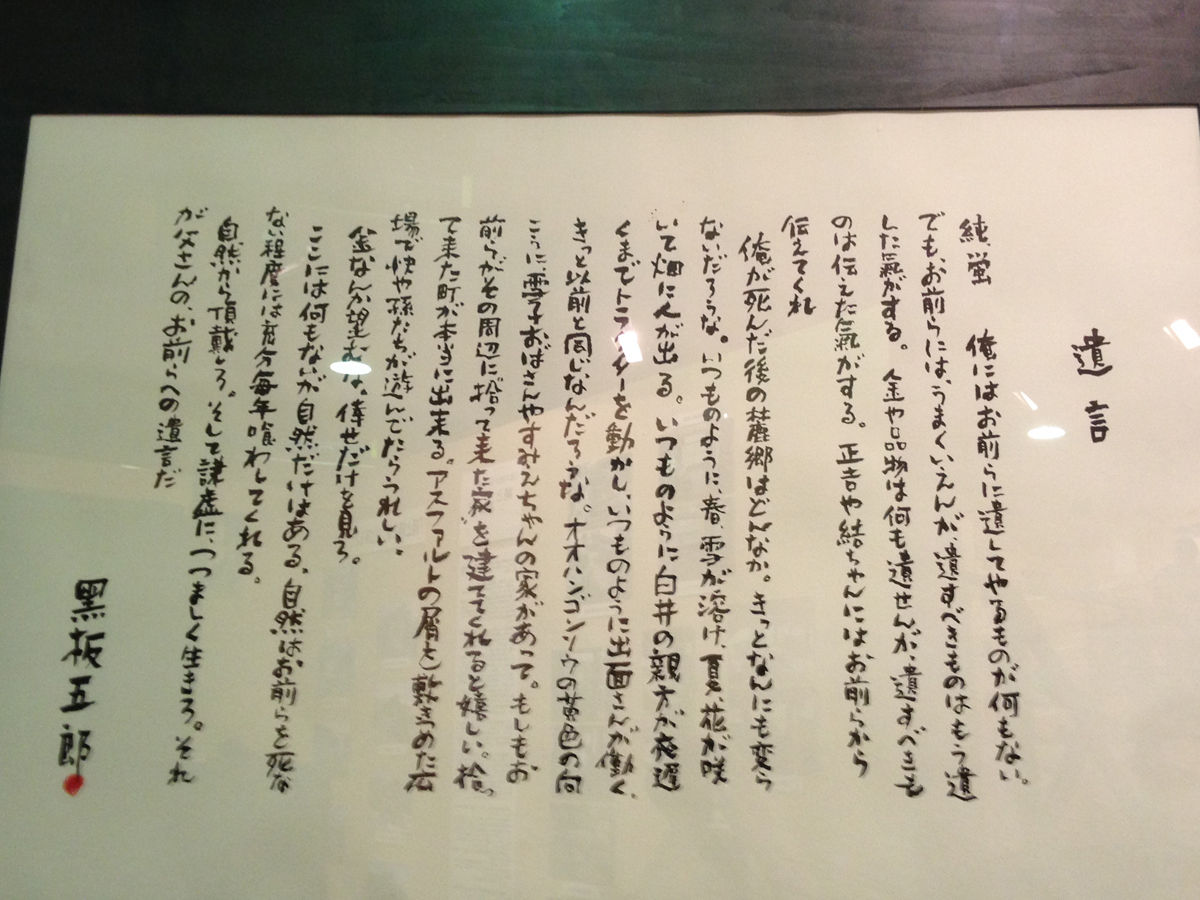 遺言
純、蛍　俺にはお前らに遺してやるものが何もない。
でも、お前らには、うまくいえんが、遺すべきものはもう遺
した氣がする。金や品物は何も遺せんが、遺すべきも
のは伝えた氣がする。正吉や結ちゃんにはお前らから
伝えてくれ
俺が死んだ後の麓郷はどんなか。きっとなんにも変ら
ないだろうな。いつものように、春、雪が溶け、夏、花が咲
いて畑に人が出る。いつものように白井の親方が夜遅
くまでトラクターを動かし、いつものように出面さんが働く。
きっと以前と同じなんだろうな。オオハンゴンソウの黄色の向
こうに雪子おばさんやすみえちゃんの家があって。もしもお
前らがその周辺に拾って来た家を建ててくれると嬉しい。拾っ
て来た町が本当に出来る。アスファルトの屑を敷きつめた広
場で快や孫たちが遊んでたらうれしい。
金なんか望むな。倖せだけを見ろ。
ここには何もないが自然だけはある。自然はお前らを死な
ない程度には充分毎年喰わしてくれる。
自然から頂戴しろ。そして謙虚に、つつましく生きろ。それ
が父さんの、お前らへの遺言だ
黒板五郎